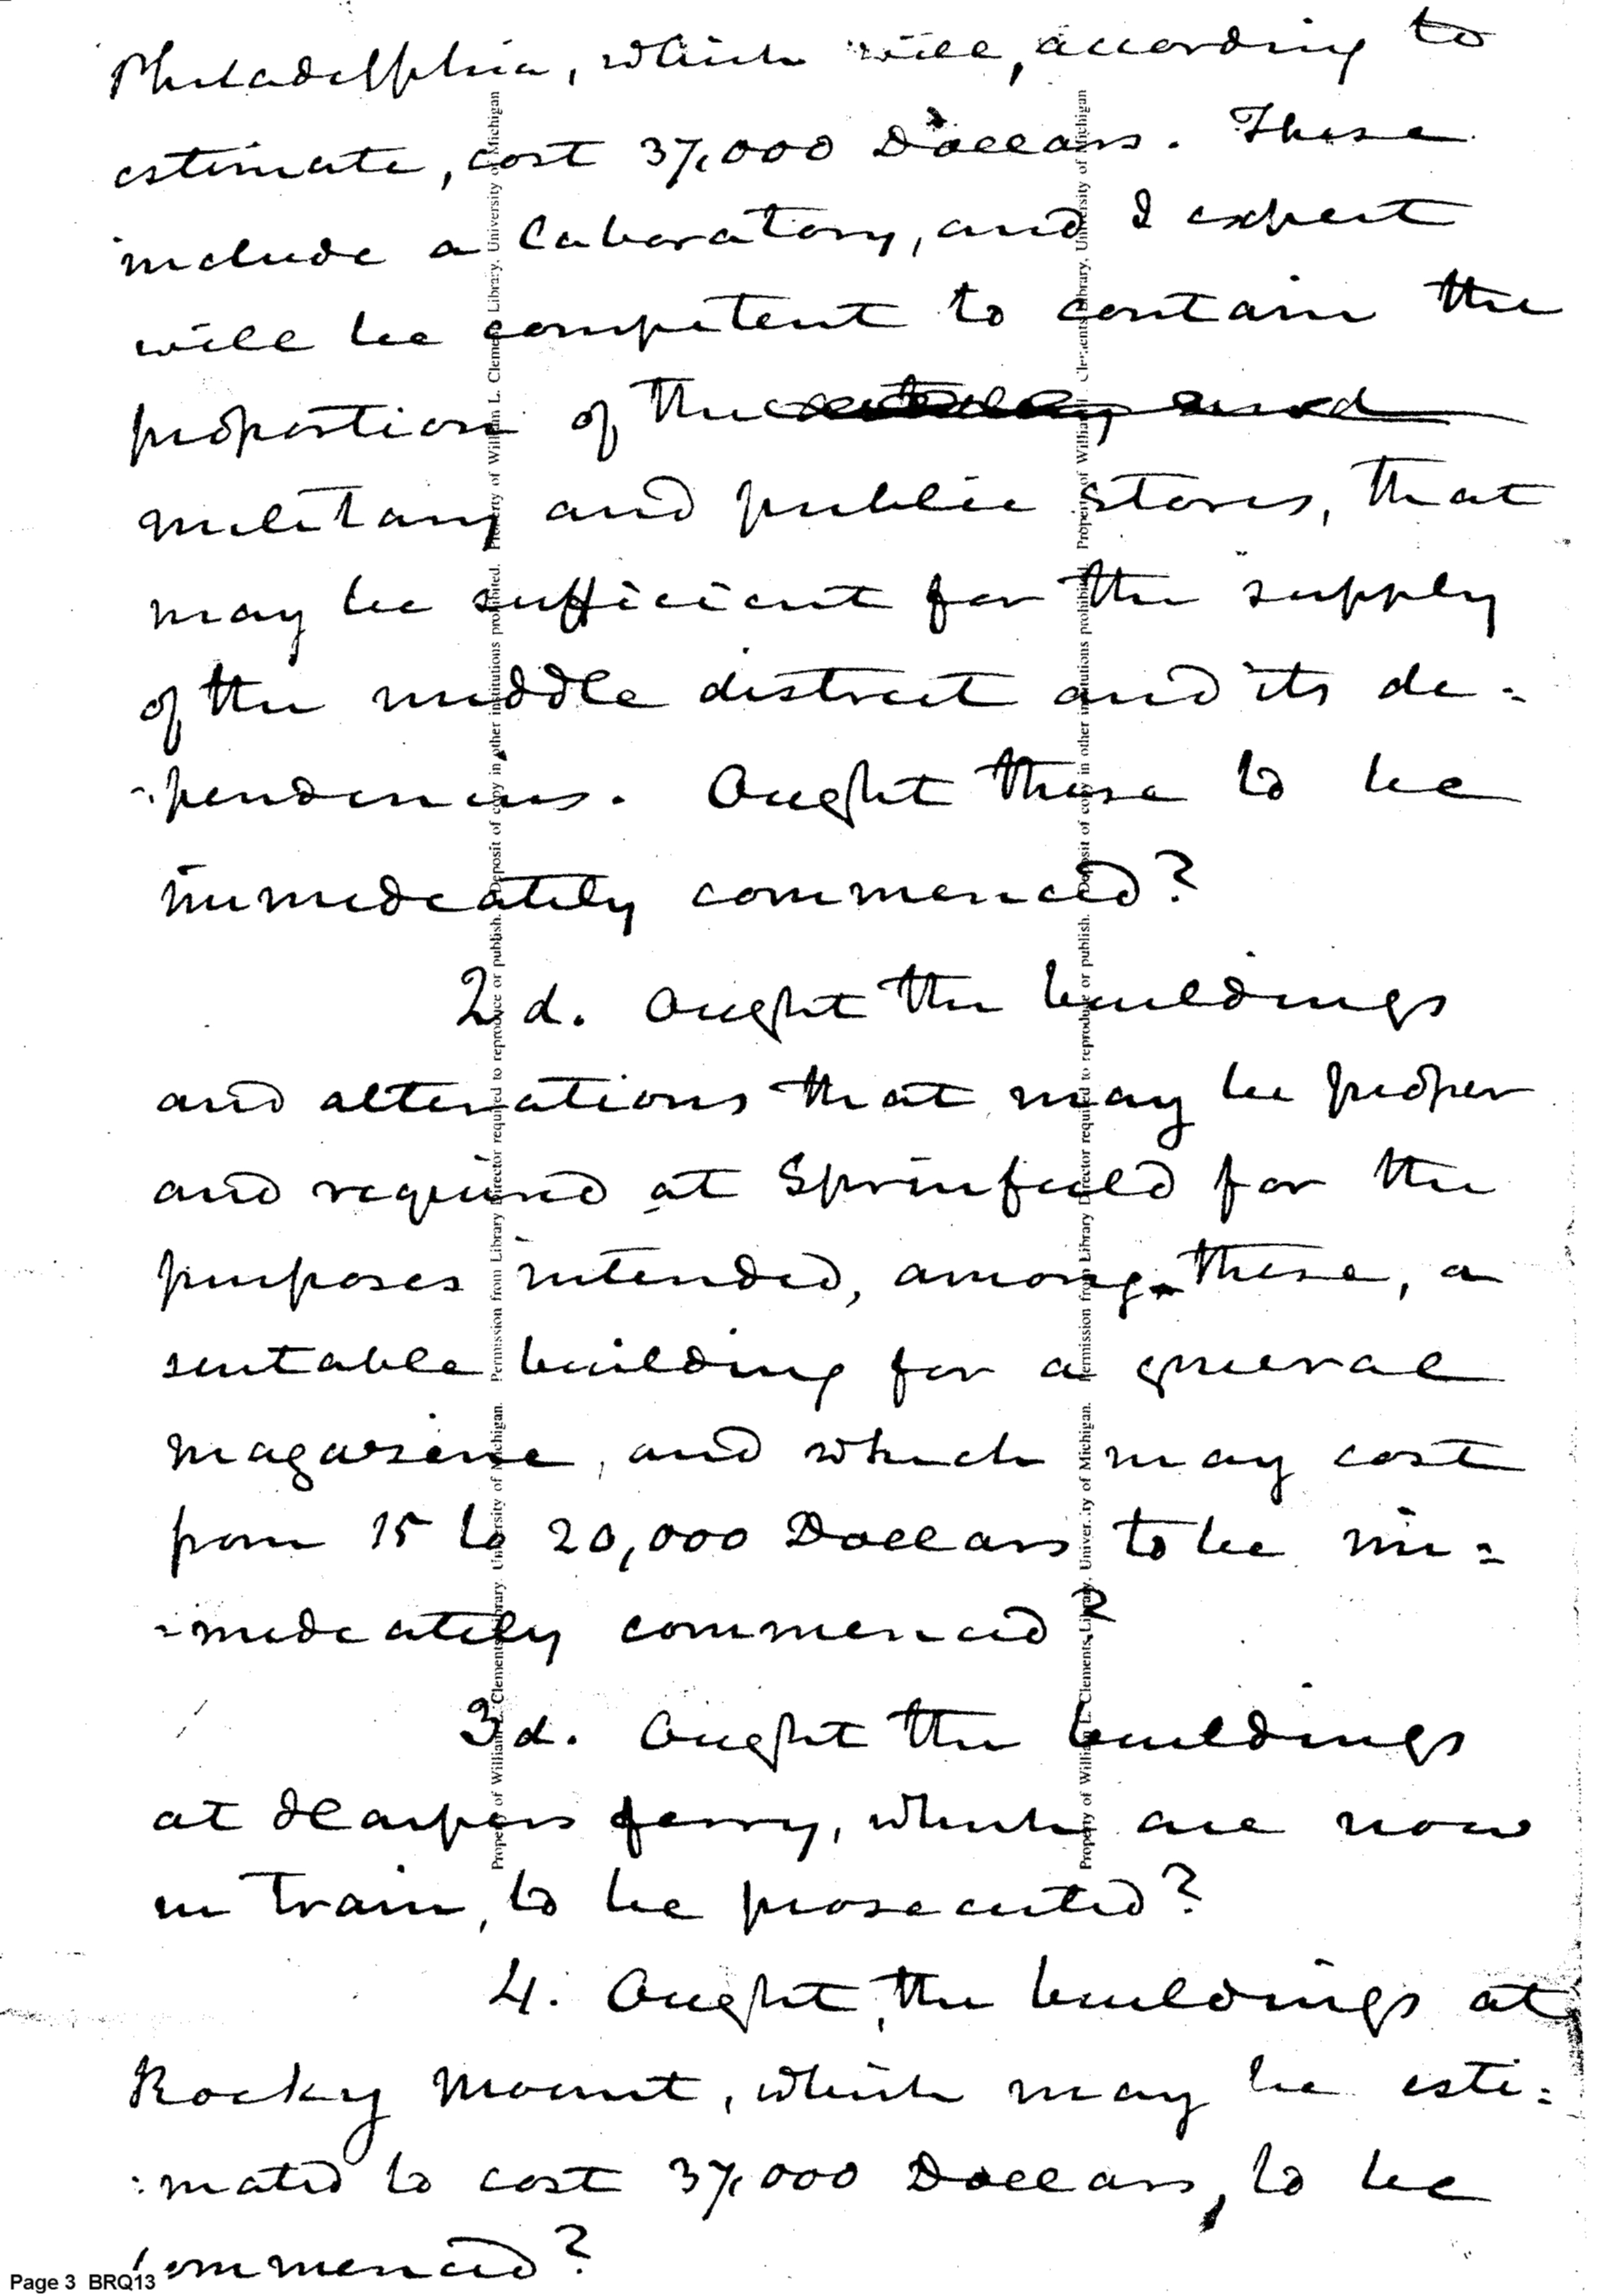 Philadelphia, which will, according to
estimate, cost 37,000 Dollars. These
include a laboratory, and I expect
will be competent to contain the
proportion of the
military and public stores, that
may be sufficient for the supply
of the middle district and its de=
-pendencies. Ought these to be
immediately commenced?
2d. Ought the buildings
and alterations that may be proper
and required at Sprinfield for the
purposes intended, among these, a
suitable building for a general
magazine, and which may cost
from 15 to 20,000 Dollars to be im=
=mediately commenced?
3d. Ought the buildings
at Harpers ferry, which are now
in train, to be prosecuted?
4. Ought, the buildings at
Rocky Mount, which may be esti=
=mated to cost 37,000 Dollars, to be
commenced?
Page 3 BRQ13
Property of William L. Clements Library. University of Michigan. Permission from Library Director required to reproduce or publish. Deposit of copy in other institutions prohibited. Property of William L. Clements Library, University of Michigan
Property of William L. Clements Library. University of Michigan. Permission from Library Director required to reproduce or publish. Deposit of copy in other institutions prohibited. Property of William L. Clements Library, University of Michigan